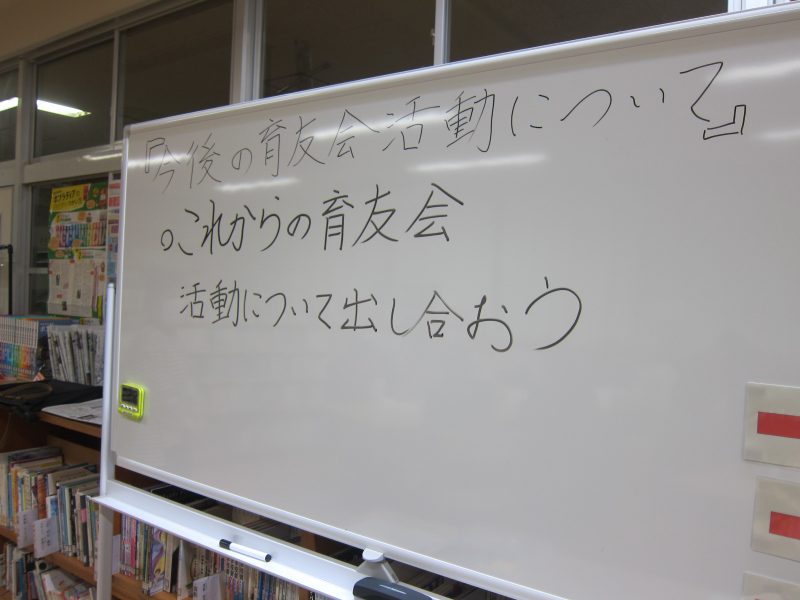 『今後の育友会活動について』
○これからの育友会
活動について出し合おう